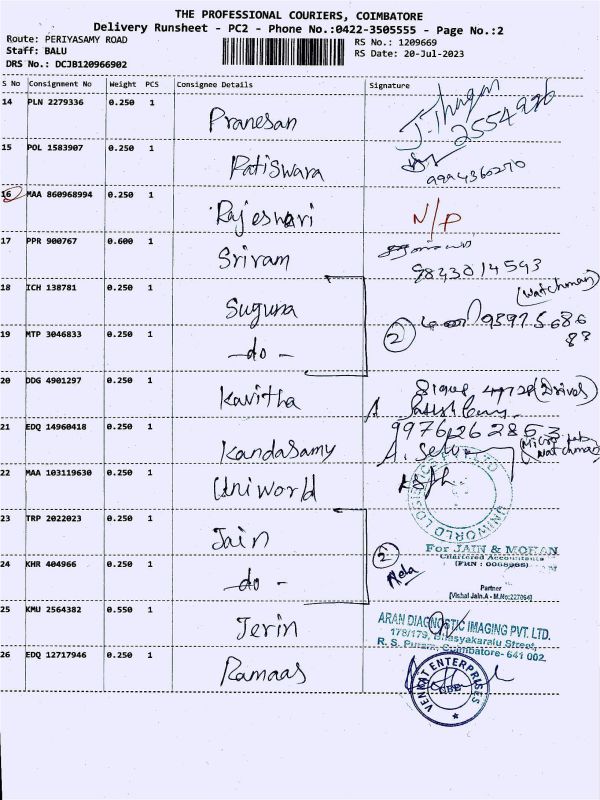 THE PROFESSIONAL COURIERS, COIMBATORE
Delivery Runsheet - PC2 - Phone No.:0422-3505555 - Page No.:2
Route: PERIYASAMY ROAD
RS No.: 1209669
Staff: BALU
RS Date: 20-Jul-2023
DRS No.: DCJB120966902
S No Consignment No Weight PCS Consignee Details Signature
14 PLN 2279336 0.250 1 Pranesan
2554926
15 POL 1583907 0.250 1 Ratiswara
16 MAA 860968994 0.250 1 Rajeswari N/P
17 PPR 900767 0.600 1 Sriram
9843014593
18 ICH 138781 0.250 1 Suguna
(Watchman)
2
19 MTP 3046833 0.250 1 -do-
20 DDG 4901297 0.250 1 Kavitha
(Driver)
21 EDQ 14960418 0.250 1 Kandasamy
9976262853
Watchman
22 MAA 103119630 0.250 1 Uniworld
UNIWORLD LOGISTICS PVT LTD
23 TRP 2022023 0.250 1 Jain
For JAIN & MOHAN
Chartered Accountants
2
24 KHR 404966 0.250 1 -do-
Partner
[Vishal Jain.A - M.No:227064]
25 KMU 2564382 0.550 1 Jerin
ARAN DIAGNOSTIC IMAGING PVT. LTD.
178/179, Bhasyakaralu Street,
R. S. Puram, Coimbatore- 641 002.
26 EDQ 12717946 0.250 1 Ramaas
VENKAT ENTERPRISES
CBE